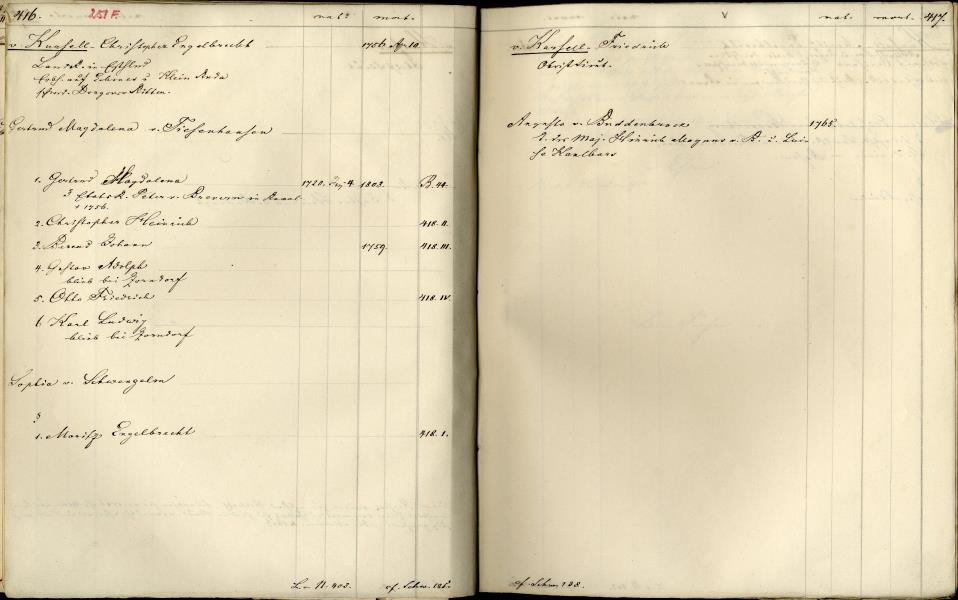 416. 251 F. nat. mort.
v. Kursell. Christopher Engelbrecht 1756 Ap. 10.
Landr. in Esthland
Erbh. auf und Klein Ruda
schwed. Dragoner Rittm.
Gertrud Magdalena v. Tiesenhausen
1. Gertrud Magdalena 1720. 4. 1803. B. 44.
Etatsr. Peter v. Brevern in Reval
+ 1756.
2. Christopher Heinrich 418. II.
3. Berend Johann 1759. 418. III.
4. Gustav Adolph
blieb bei Zorndorf
5. Otto Friedrich 418. IV.
6 Karl Ludwig
blieb bei Zorndorf
Sophia v. Schwengelm
1. Moritz Engelbrecht 418. 1.
cf. Schw. 125.
nat. mort. 417.
v. Kursell. Friedrich
Obristlieut.
Augusta v. Buddenbrock 1765.
d. des Maj. Hinrich Magnus v. B. u. Lui-
sa Kaulbars
cf. Schw. 128.